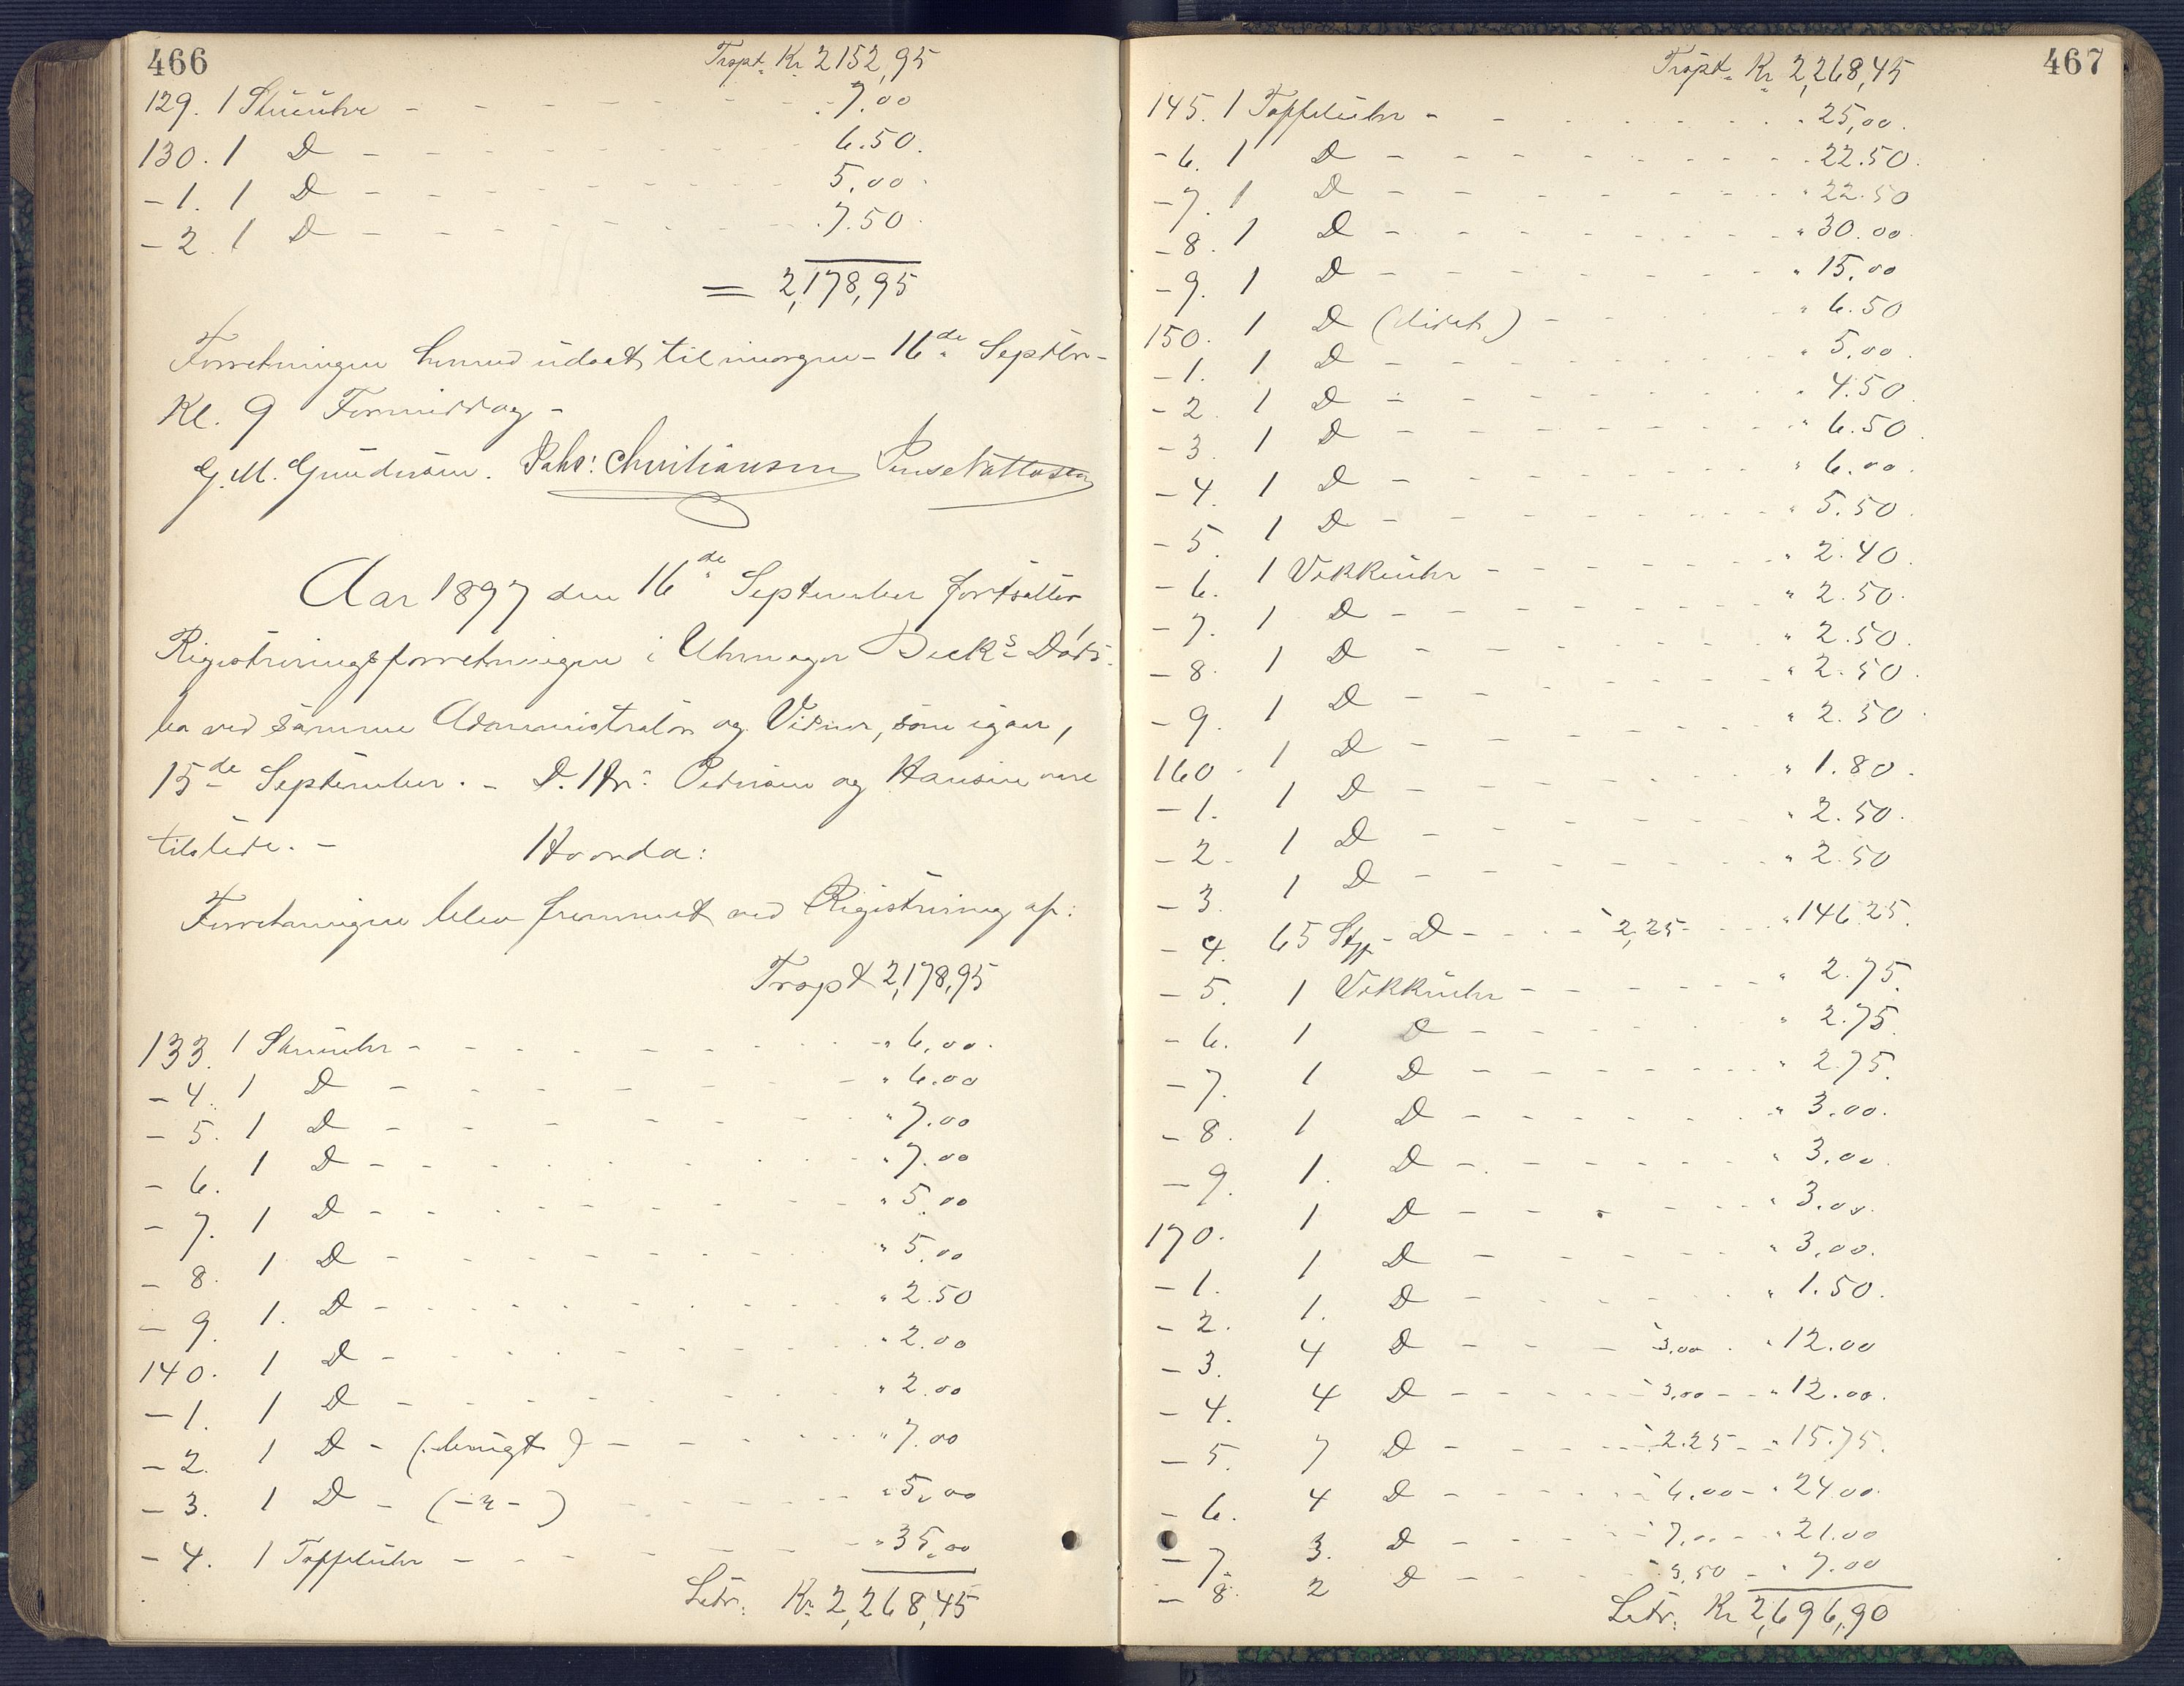 466
Trspt. Kr. 2152,95
129. 1 Stueuhr - - - - - 7.00
130. 1 D - - - - - 6.50.
- 1. 1 D - - - - - 5,00
- 2. 1 D - - - - - 7.50
= 2,178,95
Forretningen herved udsat til imorgen - 16de Septbr -
Kl. 9 Formiddag -
G. M. Gundersen. Christiansen
Aar 1897 den 16de September fortsattes
Registreringsforretningen i Uhrmager Becks Døds-
bo ved samme Administrator og Vidner, som igaar,
15de September. - D. Hrr. Pedersen og Hansen vare
tilstede. - Hvorda:
Forretningen blev fremmet ved Registrering af:
Trspt 2,178,95
133. 1 Stueuhr - - - - - " 6,00.
- 4. 1 D - - - - - " 6.00
- 5. 1 D - - - - - " 7.00
- 6. 1 D - - - - - " 7.00
- 7. 1 D - - - - - " 5.00
- 8. 1 D - - - - - " 5.00
- 9. 1. D - - - - - " 2.50
140. 1 D - - - - - " 2.00
- 1. 1 D - - - - - " 2.00
- 2. 1 D - (brugt) - - - - " 7.00
- 3. 1 D - (-"-) - - - - " 5,00
- 4. 1 Taffeluhr - - - - - " 35,00
Latr. Kr. 2,268,45
467
Trspt. Kr. 2,268,45
145. 1 Taffeluhr - - - - - " 25,00.
- 6. 1 D - - - - - " 22.50.
- 7. 1 D - - - - - " 22.50
- 8. 1 D - - - - - " 30.00
- 9. 1 D - - - - - " 15.00
150. 1 D (defekt) - - - - " 6.50
- 1. 1 D - - - - - " 5,00.
- 2. 1 D - - - - - " 4.50
- 3. 1 D - - - - - " 6.50
- 4. 1 D - - - - - " 6.00.
- 5. 1 D - - - - - " 5.50.
- 6. 1 Vækkeuhr - - - - - " 2.40.
- 7. 1 D - - - - - " 2.50.
- 8. 1 D - - - - - " 2.50.
- 9. 1 D - - - - - " 2.50.
160. 1 D - - - - - " 2.50
- 1. 1 D - - - - - " 1.80.
- 2. 1 D - - - - - " 2.50.
- 3. 1 D - - - - - " 2.50
- 4. 65 Stk. D - - - - 2,25 - - - " 146.25.
- 5. 1 Vækkeuhr - - - - - " 2.75.
- 6. 1 D - - - - - " 2.75.
- 7. 1 D - - - - - " 2.75.
- 8. 1 D - - - - - " 3.00.
- 9. 1. D - - - - - " 3.00.
170. 1 D - - - - - " 3.00.
- 1. 1 D - - - - - " 3.00.
- 2. 1. D - - - - - " 1.50.
- 3. 4 D - - - 3,00 - " 12.00
- 4. 4 D - - - - 3,00 - - " 12.00.
- 5. 7 D - - - - 2.25 - - " 15.75.
- 6. 4 D - - - - 6.00 - " 24.00.
- 7. 3. D - - - - 7,00 - - " 21.00
- 8. 2 D - - - - 3,50 - " 7.00
Latr. Kr 2,696,90